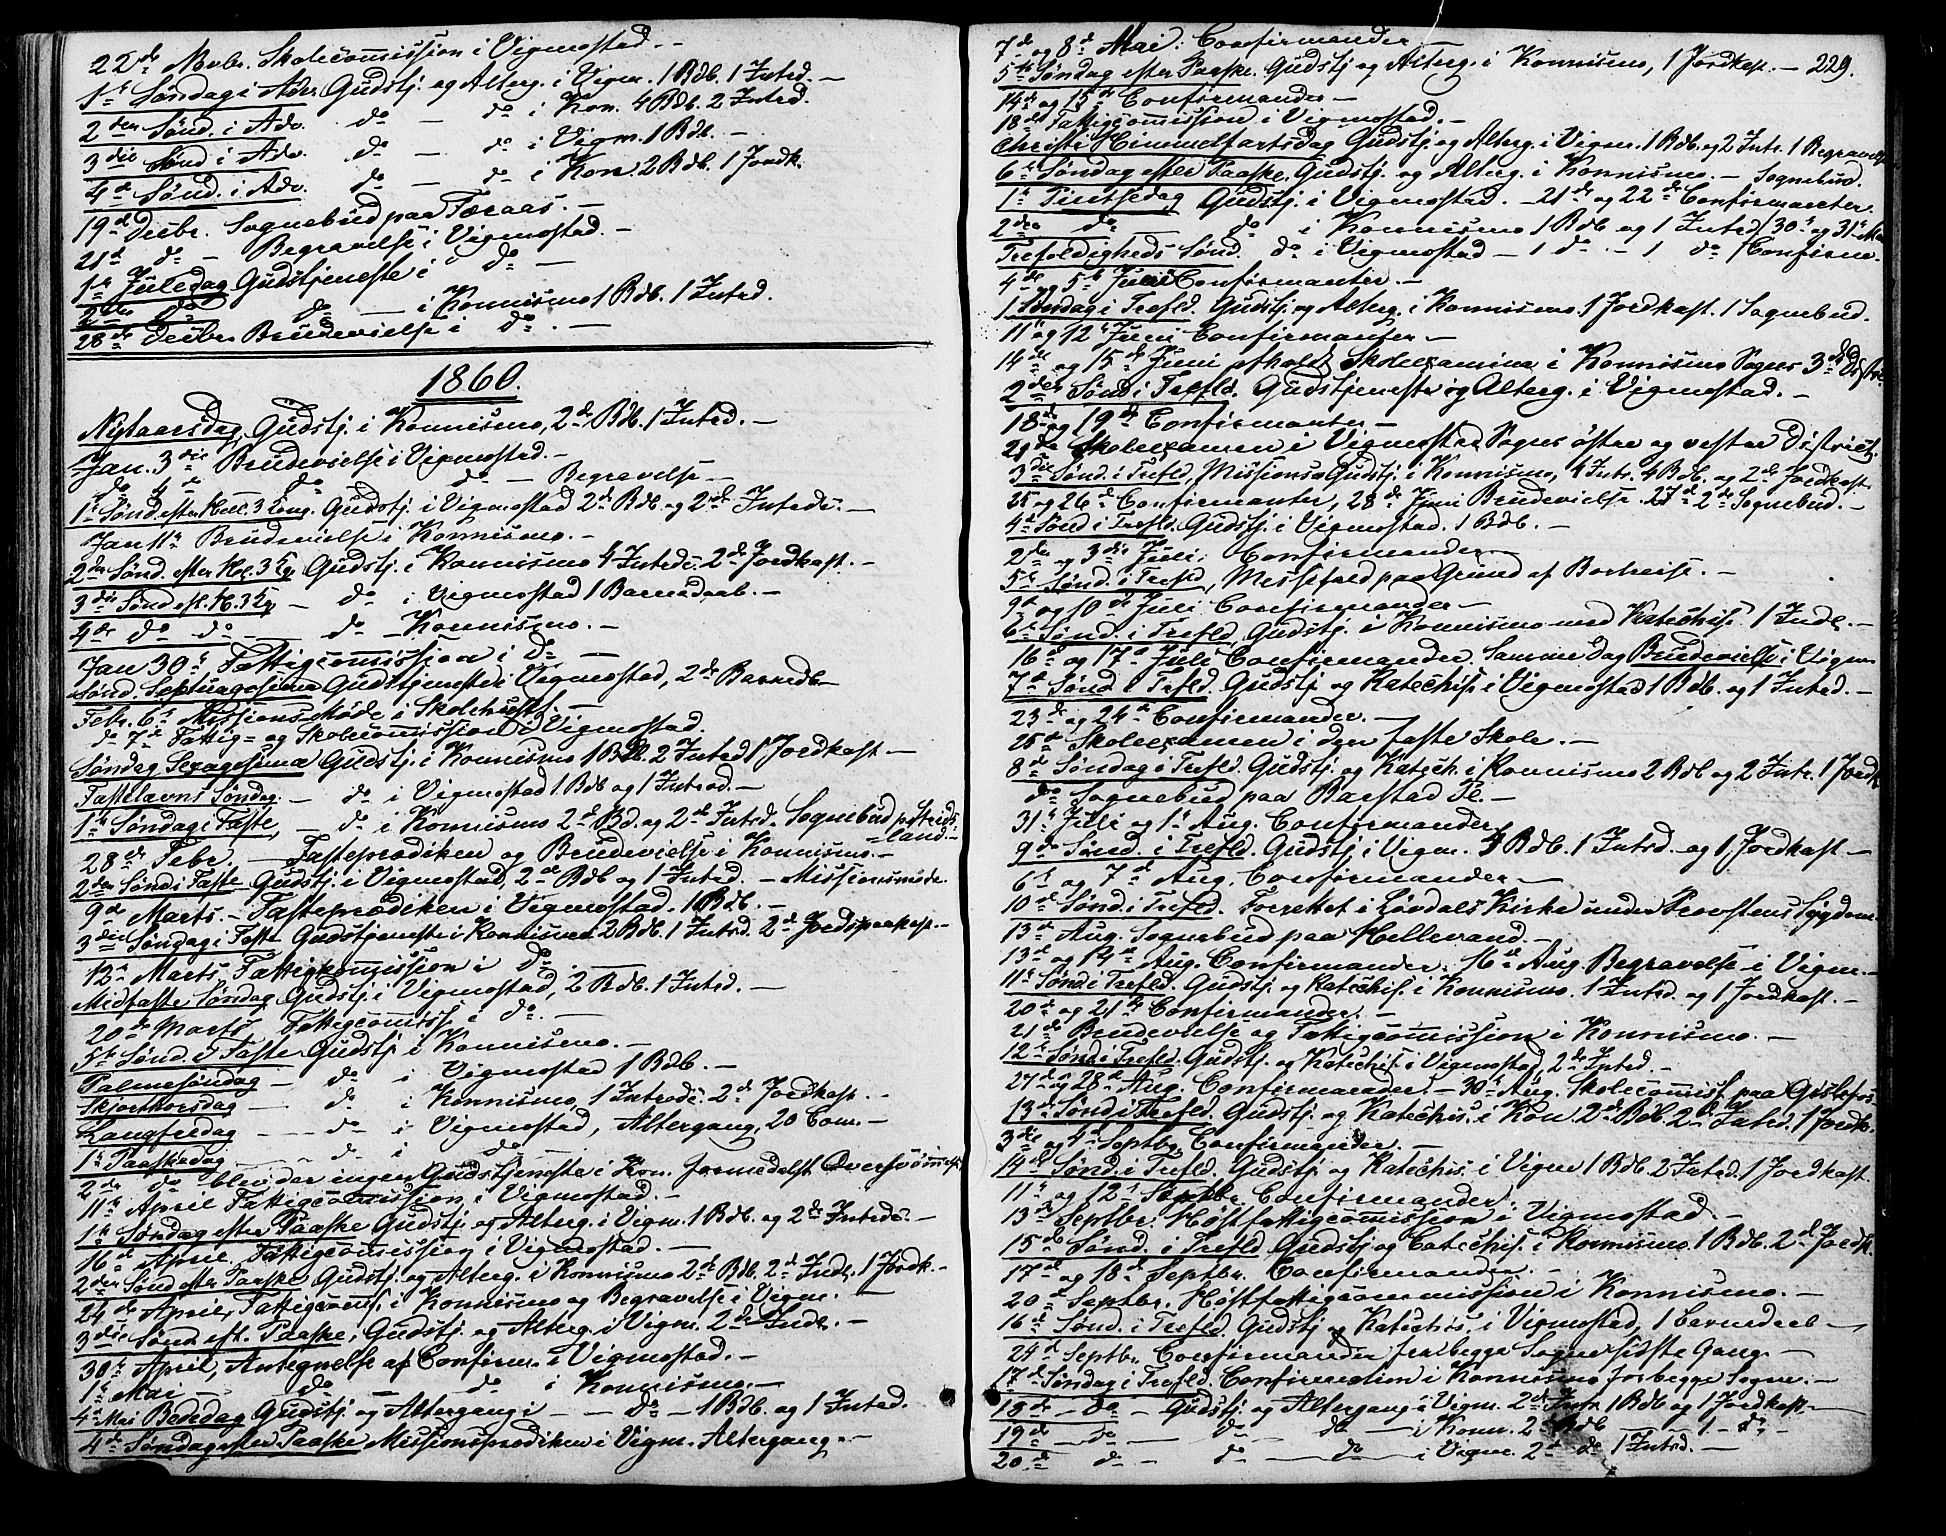 22de Novbr. Skolecomission i Vigmostad. -
1ste Søndag i Adv. Gudstj. og Alterg. i Vigm. 1 Bdb. 1 Intrd. -
2den Sønd. i Adv. do - do i Kon. 4 Bdb. 2 Intrd.
3die Sønd i Adv. do - do i Vigm. 1 Bdb. -
4de Sønd. i Adv. do - do i Kon. 2 Bdb. 1 Jordk.
19de Decbr. Sognebud paa
21de do - Begravelse i Vigmostad. -
1ste Juledag Gudstjeneste i do -
2den do do - i Konnismo 1 Bdb. 1 Intrd.
28de Decbr. Brudevielse i do. -
1860.
Nytaarsdag, Gudstj. i Konnismo, 2de Bdb. 1 Intrd. -
Jan. 3die Brudevielse i Vigmostad. -
do 4de do do - Begravelse -
1ste Sønd. efter Hell. 3 Kong. Gudstj. i Vigmostad 2de Bdb. og 2de Intrde. -
Jan 11te Brudevielse i Konnismo. -
2den Sønd. efter Hel. 3 Kg. Gudstj. i Konnismo 4 Intrde. 2de Jordkast. -
3die Sønd. eft. H. 3 Kg - do i Vigmostad 1 Barnedaab. -
4de do do - do - Konnismo. -
Jan 30te Fattigcomission i do -
Sønd. Septuagesima Gudstjeneste i Vigmostad, 2de Barnedb -
Febr. 6te Missionsmøde i Skolehuset. -
do 7de Fattig= og Skolecomission i Vigmostad.
Søndag Sexagesima Gudstj. i Konnismo 1 Bdb. 2 Intrd 1 Jordkast -
Fastelavns Søndag. - do i Vigmostad 1 Bdb og 1 Intrd. -
1ste Søndag i Faste, - do i Konnismo 2de Bd. og 2de Intrd. Sognebud
=land. -
28de Febr. - Fasteprædiken og Brudevielse i Konnismo. -
2den Sønd i Faste Gudstj. i Vigmostad, 2de Bdb og 1 Intrd. - Missionsmøde.
9de Marts. - Fasteprædiken i Vigmostad. 1 Bdb. -
3die Søndag i Faste Gudstjeneste i Konnismo 2 Bdb. 1 Intrd. 2de Jordspaakast. -
12te Marts. Fattigkomission i do. -
Midfaste Søndag Gudstj. i Vigmostad, 2 Bdb. 1 Intrd. -
20de Marts, Fattigcomiss. i do. -
5te Sønd. i Faste Gudstj i Konnismo. -
Palmesøndag - do i Vigmostad 1 Bdb. -
Skjærthorsdag - do i Konnismo, 1 Introde. 2de Jordkast. -
Langfredag - do i Vigmostad, Altergang, 20 Com. -
1te Paaskedag - do i do -
2den do blev der ingen Gudstjeneste i Kon. formedelst Oversvømmelse
11te April Fattigcomission i Vigmostad. -
1te Søndag efter Paaske Gudstj. og Alterg. i Vigm. 1 Bdb. og 2de Intrde. -
16de April. Fattigcomission i Vigmostad. -
2den Sønd efter Paaske Gudstj. og Alterg. i Konnismo 2de Bdb. 2de Indl. 1 Jordk. -
24de April, Fattigcomis. i Konnismo og Begravelse i Vigm. -
3die Sønd. eft. Paaske, Gudstj. og Alterg. i Vigm. 2de Indl. -
30te April, Antegnelse af Confirm. i Vigmostad. -
1te Mai - do - do i Konnismo. -
4de Mai Bededag Gudstj. og Altergang i - do - 1 Bdb. og 1 Intrd.
4de Søndag efter Paaske Missionsprædiken i Vigm. Altergang. -
7de og 8de Mai. Confirmander -
5te Søndag efter Paaske. Gudstj og Alterg. i Konnismo, 1 Jordkast. - 229.
14de og 15de Confirmander -
18de Fattigcomission i Vigmostad. -
Christi Himmelfartsdag Gudstj og Alterg. i Vigm. 1 Bdb. og 2 Intr. 1 Begravelse
6te Søndag efter Paaske. Gudstj. og Alterg. i Konnismo. - Sognebud.
1te Pintsedag Gudstj. i Vigmostad. - 21de og 22de Confirmanter.
2den do do i Konnismo 1 Bdb og 1 Intrd / 30te og 31te Mai
Trefoldigheds Sønd. do i Vigmostad - 1 do - 1 do / Confirm.
4de og 5te Juni Confirmanter. -
1 Søndag i Trefld. Gudstj. og Alterg. i Konnismo. 1 Jordkast. 1 Sognebud.
11te og 12te Juni Confirmanter -
14de og 15de Juni afholdt Skolexamina i Konnismo Sogns 3de Distric
2den Sønd i Trefld. Gudstjeneste og Alterg. i Vigmostad. -
18de og 19de Confirmanter -
Skolexamen i Vigmostad Sogns østre og vestre District.
3die Sønd. i Trefld, Missions Gudstj. i Konnismo, 4 Intr. 4 Bdb. og 2de Jordkast
25 og 26de Confirmanter, 28de Juni Brudevielse. 27de 2de Sognebud. -
4de Sønd i Trefld. Gudstj. i Vigmostad. 1 Bdb. -
2den og 3die Juli. Confirmander
5te Sønd. i Trefld, Messefald paa Grund af Bortreise. -
9de og 10de Juli Confirmander -
6te Sønd. i Trefld. Gudstj. i Konnismo med Katechis. 1 Indl. -
16de og 17de Juli Confirmander. Samme Dag Brudevielse i Vigm
7de Sønd i Trefld. Gudstj og Katechis. i Vigmostad 1 Bdb. og 1 Intrd. -
23de og 24de Confirmander. -
25de Skolexamen i den faste Skole. -
8de Søndag i Trefld. Gudstj. og Katech. i Konnismo 2 Bdb og 2 Intr. 1 Jordk
do Sognebud paa
31te Juli og 1te Aug. Confirmander
9de Sønd. i Trefld. Gudstj i Vigm. Bdb. 1 Intrd. og 1 Jordkast -
6te og 7de Aug. Confirmander -
10de Sønd. i Trefld. Forrettet i Løvdals Kirke under Provstens Sygdom.
13de Aug. Sognebud paa Helleland. -
13de og 14de Aug. Confirmander. 16de Aug. Begravelse i Vigm. -
11te Sønd i Trefld. Gudstj. og Katechis. i Konnismo. 1 Intrd. og 1 Jordkast. -
20de og 21de Confirmander. -
21de Brudevielse og Fattigcomission i Konnismo. -
12te Sønd i Trefld. Gudstj. og Katechis. i Vigmostad, 2de Intrd. -
27de og 28de Aug. Confirmander - 30te Aug. Skolecomiss. paa
13de Sønd i Trefld. Gudstj og Katechis. i Kon. 2de Bdb. 2de Intrd. 1 Jordk.
3die og 4de Septbr. Confirmander. -
14de Sønd. i Trefld. Gudstj og Katechis. i Vigm 1 Bdb. 2 Intrd. 1 Jordkast.
11te og 12te Septbr. Confirmander.
13de Septbr. Høstfattigcomission i Vigmostad. -
15de Sønd. i Trefld Gudstj og Catechis. i Konnismo. 1 Bdb. 2de Jordk.
17de og 18de Septbr. Confirmander. -
20de Septbr. Høstfattigcommission i Konnismo. -
16de Sønd. i Trefld. Gudstj og Katechis i Vigmostad, 1 Barnedaab -
24de Septbr. Confirmander fra begge Sogne sidste Gang -
17de Søndag i Trefld. Confirmation i Konnismo for begge Sogne. -
18de - do - Gudstj. og Altergang i Vigm. 2de Intr. 1 Bdb og 1 Jordkast -
19de - do - do - do - i Konn. 2de Bdb - 1 - do -
20de do - do - do - i Vigm. 2de do 1 Intrd. -